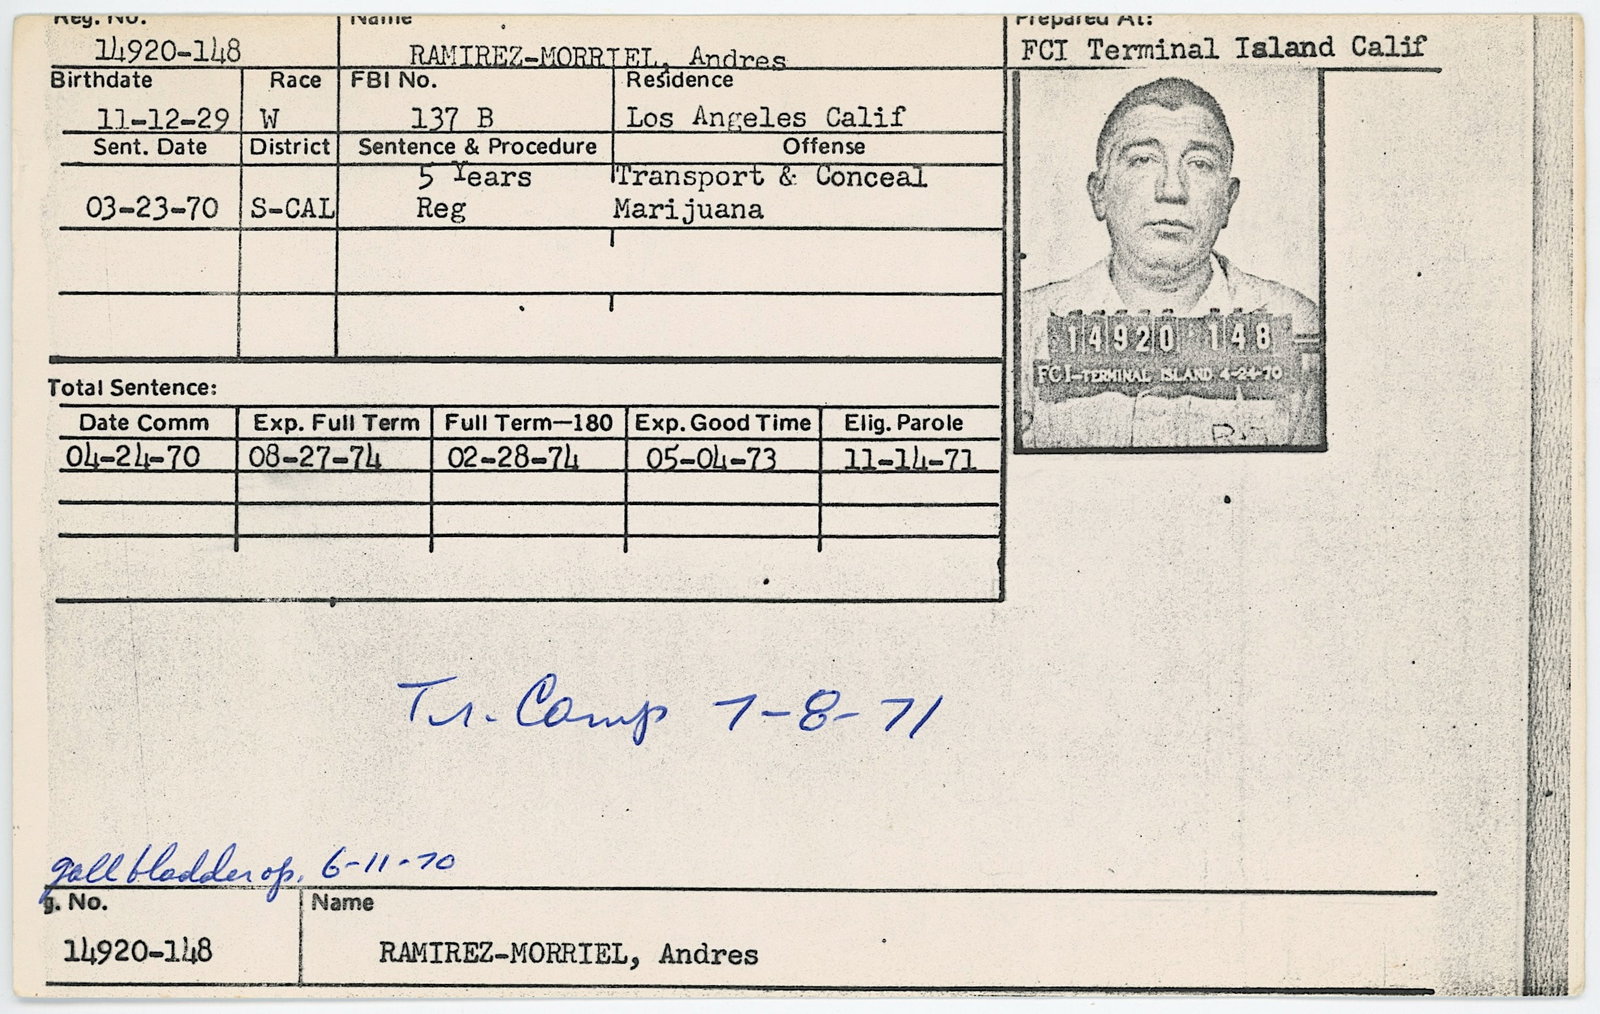 Reg. No. Name Prepared At:
14920-148 RAMIREZ-MORRIEL, Andres FCI Terminal Island Calif
Birthdate Race FBI No. Residence
11-12-29 W 137 B Los Angeles Calif
Sent. Date District Sentence & Procedure Offense
5 Years Transport & Conceal
03-23-70 S-CAL Reg Marijuana
14920 148
FCI-TERMINAL ISLAND 4-24-70
Total Sentence:
Date Comm Exp. Full Term Full Term—180 Exp. Good Time Elig. Parole
04-24-70 08-27-74 02-28-74 05-04-73 11-14-71
Tr. Camp 7-8-71
gall bladder op. 6-11-70
g. No. Name
14920-148 RAMIREZ-MORRIEL, Andres